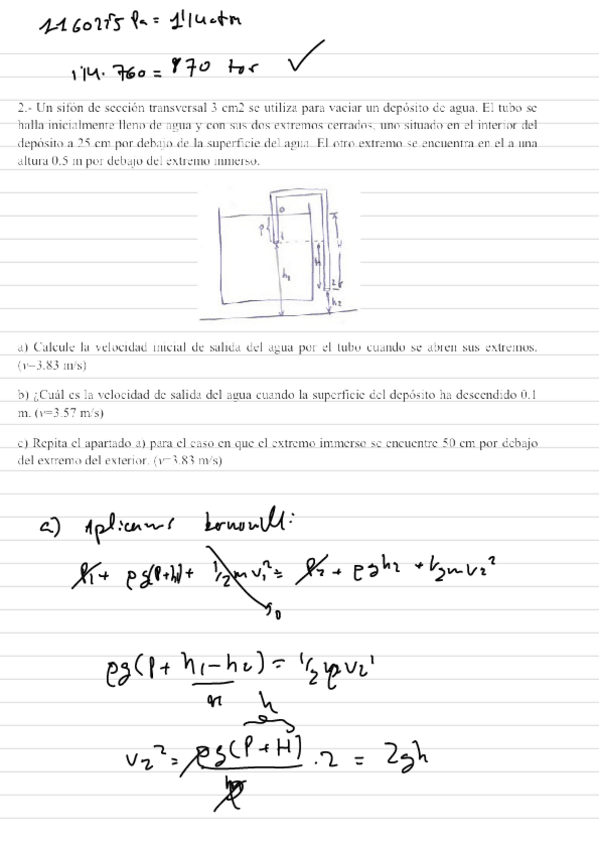 1160275 Pa = 1'14 atm
1'14 · 760 = 870 tor ✓
2.- Un sifón de sección transversal 3 cm2 se utiliza para vaciar un depósito de agua. El tubo se
halla inicialmente lleno de agua y con sus dos extremos cerrados, uno situado en el interior del
depósito a 25 cm por debajo de la superficie del agua. El otro extremo se encuentra en el a una
altura 0.5 m por debajo del extremo inmerso.
0
P
1
h1
H
2
h2
a) Calcule la velocidad inicial de salida del agua por el tubo cuando se abren sus extremos.
(v=3.83 m/s)
b) ¿Cuál es la velocidad de salida del agua cuando la superficie del depósito ha descendido 0.1
m. (v=3.57 m/s)
c) Repita el apartado a) para el caso en que el extremo inmerso se encuentre 50 cm por debajo
del extremo del exterior. (v=3.83 m/s)
a) Aplicamos bernoulli:
P1 + ρg(P+h1) + 1/2 m v1² = P2 + ρgh2 + 1/2 m v2²
0
ρg(P + h1 - h2) = 1/2 ρ v2²
H h
v2² = ρg(P + H) · 2 = 2gh
ρ